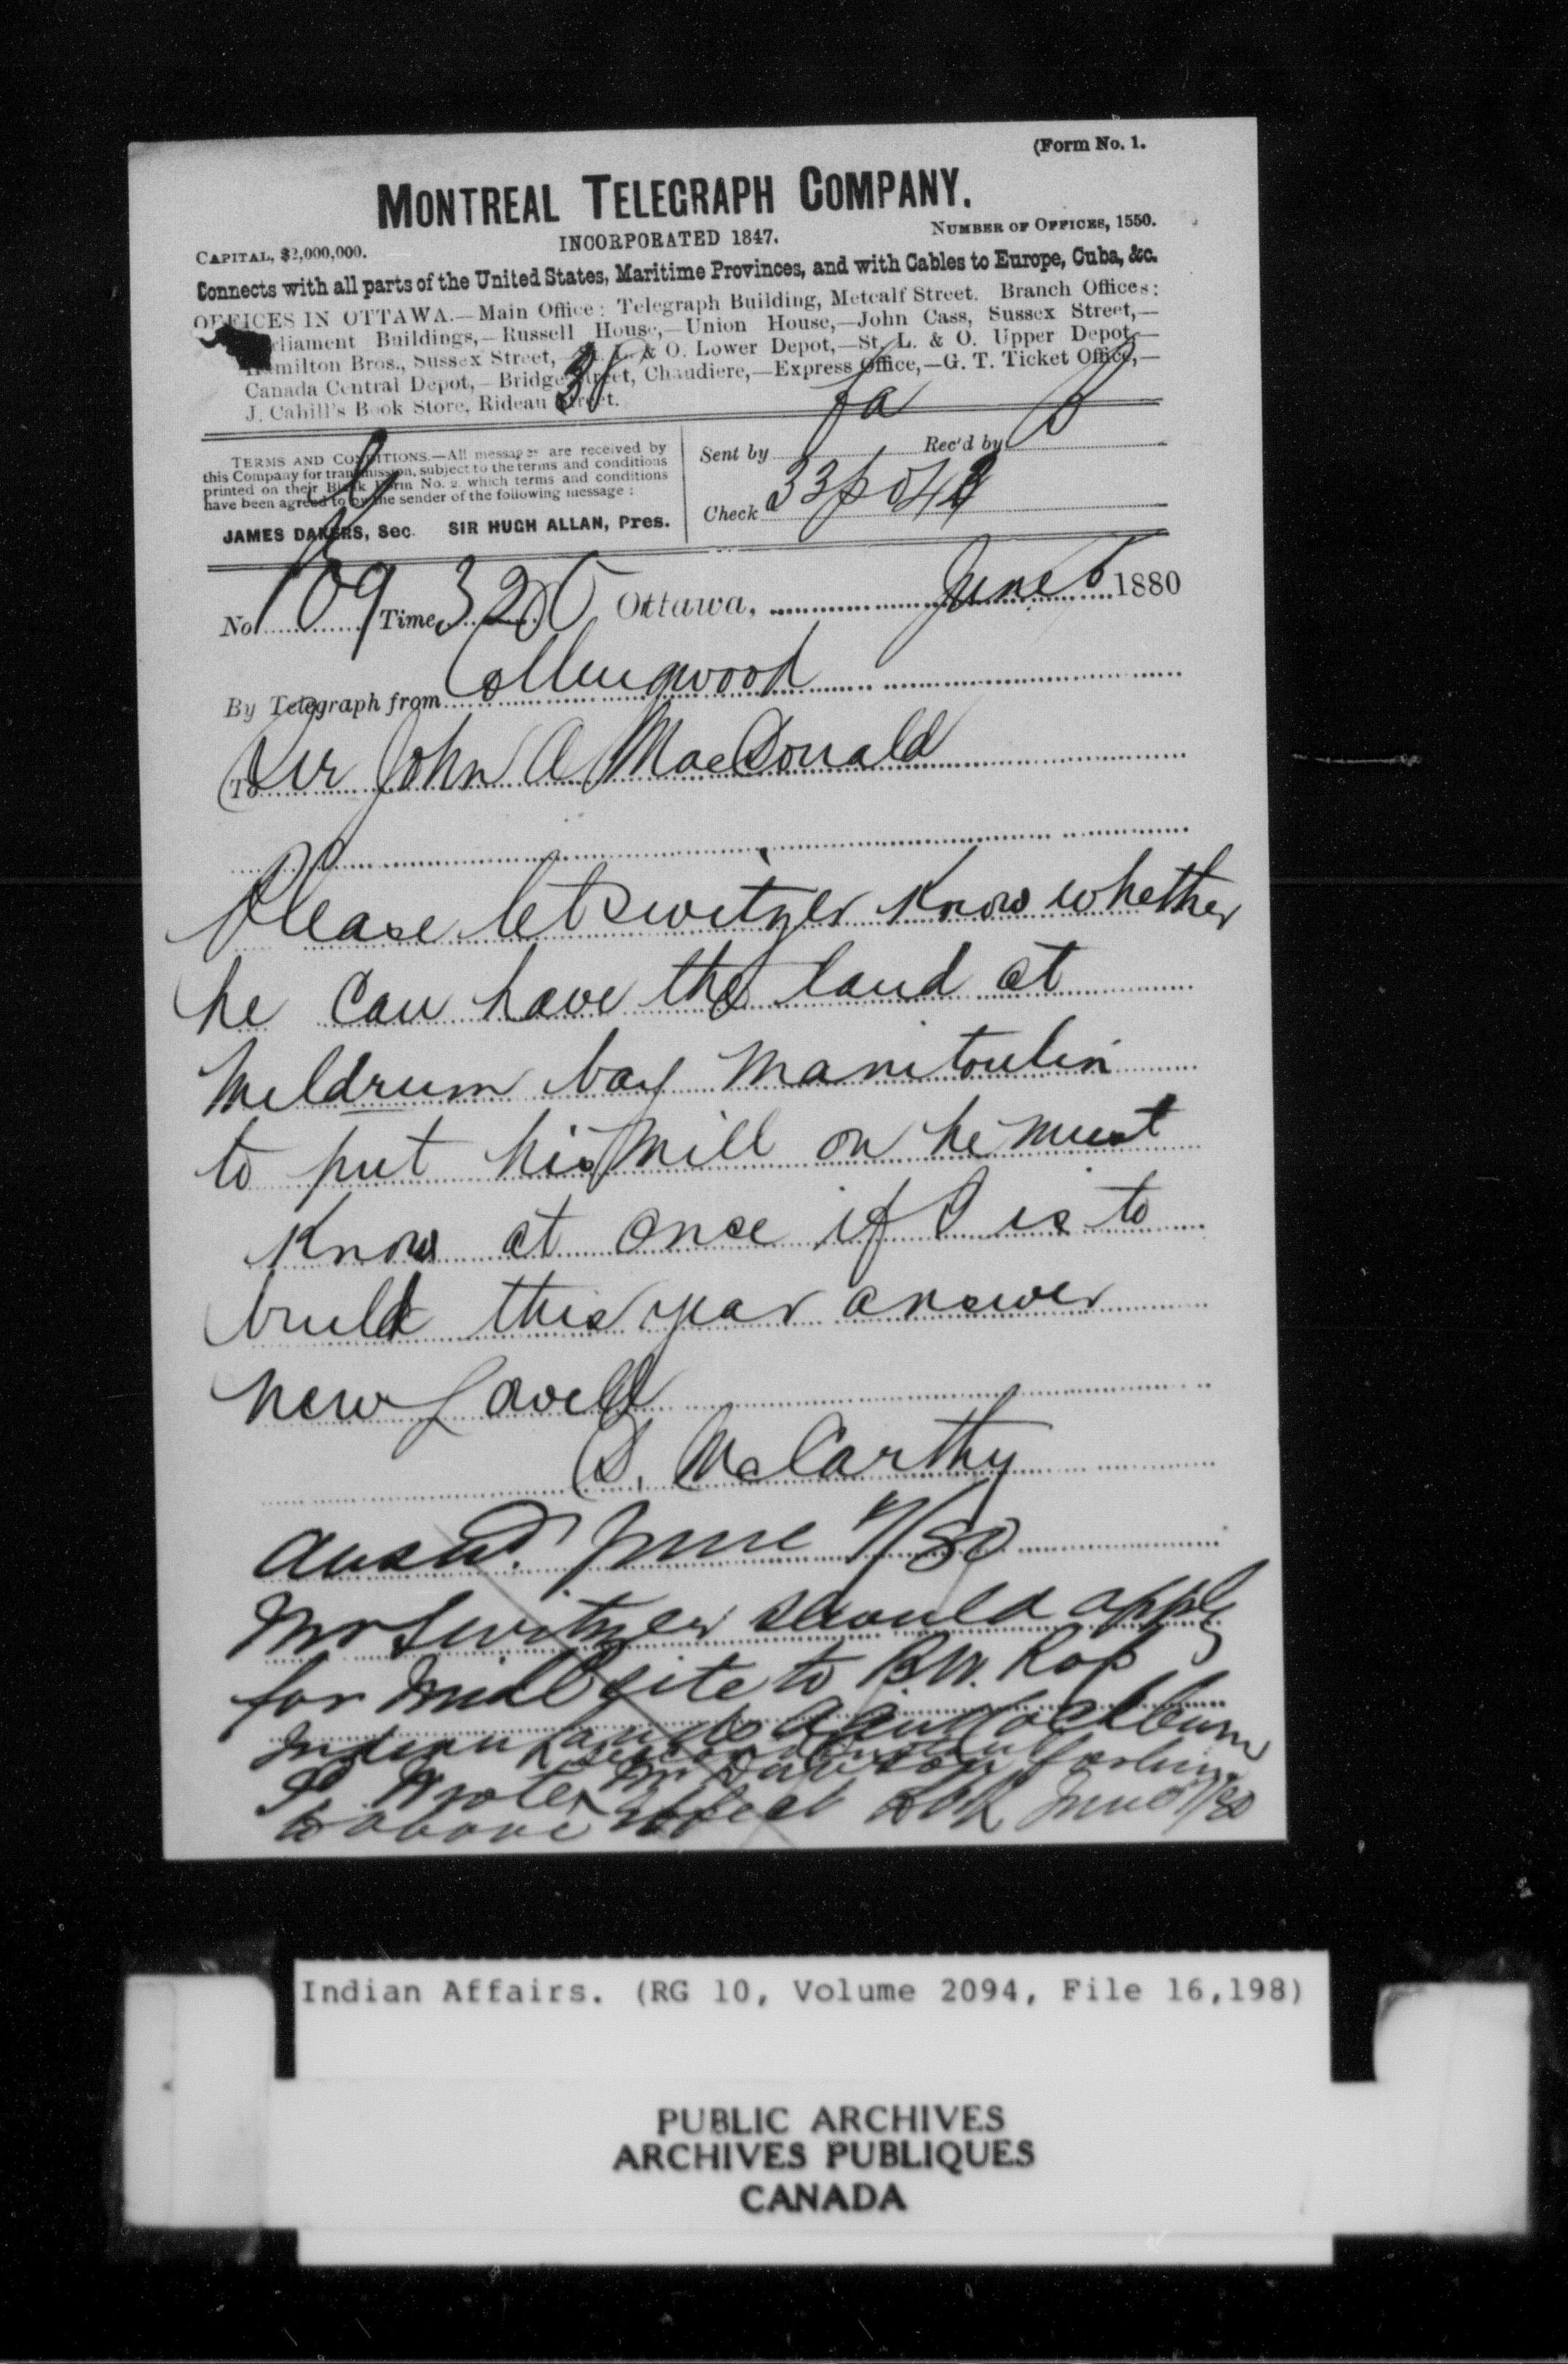 (Form No. 1.
MONTREAL TELEGRAPH COMPANY.
CAPITAL, $2,000,000. INCORPORATED 1847. NUMBER OF OFFICES, 1550.
Connects with all parts of the United States, Maritime Provinces, and with Cables to Europe, Cuba, &c.
OFFICES IN OTTAWA.—Main Office: Telegraph Building, Metcalf Street. Branch Offices:
rliament Buildings,—Russell House,—Union House,—John Cass, Sussex Street,—
milton Bros., Sussex Street,—St. L. & O. Lower Depot,—St. L. & O. Upper Depot,—
Canada Central Depot,—Bridge Street, Chaudiere,—Express Office,—G. T. Ticket Office,—
J. Cahill's Book Store, Rideau Street.
TERMS AND CONDITIONS.—All messages are received by
this Company for transmission, subject to the terms and conditions
printed on their Blank Form No. 2, which terms and conditions
have been agreed to by the sender of the following message:
JAMES DAKERS, Sec. SIR HUGH ALLAN, Pres.
Sent by Rec'd by
Check 33
No 109 Time 320 Ottawa, June 1880
By Telegraph from Collingwood
To Sir John A MacDonald
Please let Switzer know whether
he can have the land at
Meldrum bay Manitoulin
to put his mill on he must
know at once if I is to
build this year answer
New Lowell
D. McCarthy
Answd. June 7/80
Mr Switzer should apply
for mill site to B.W. Ross
Indian Lands Agent Cockburn
I wrote Mr Dawson
to above effect June 7/80
Indian Affairs. (RG 10, Volume 2094, File 16,198)
PUBLIC ARCHIVES
ARCHIVES PUBLIQUES
CANADA